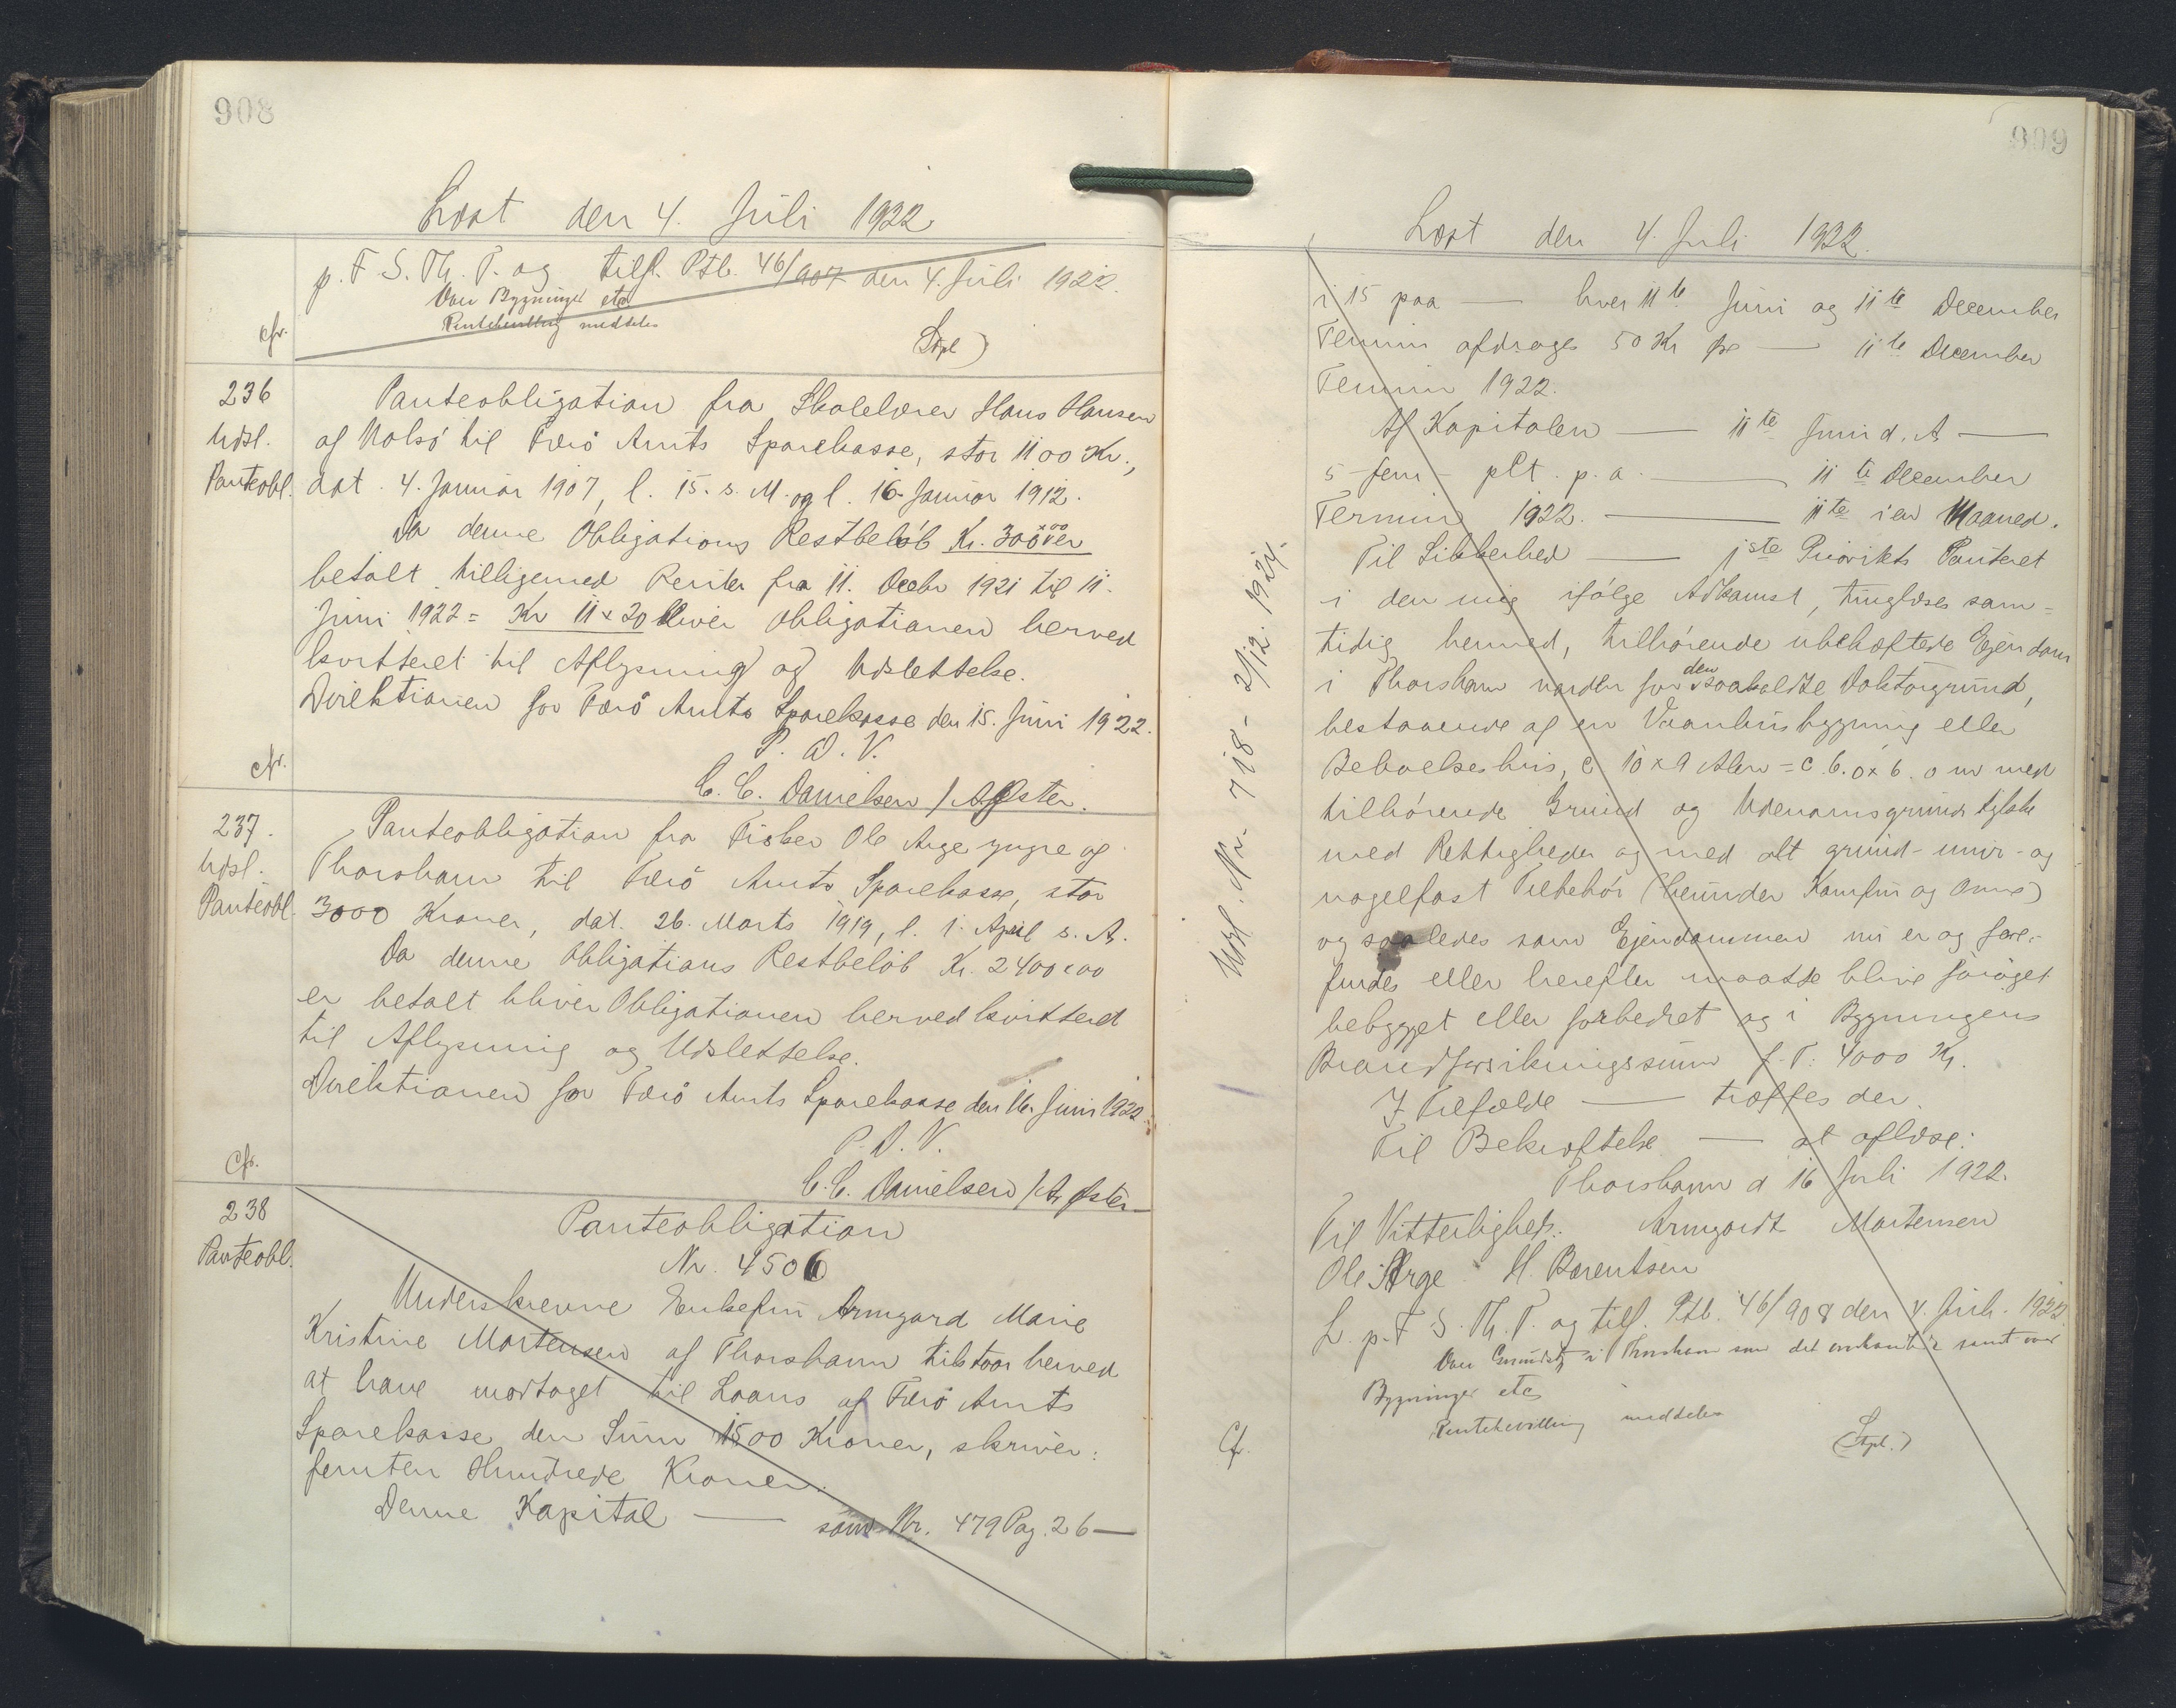 908
Læst den 4. Juli 1922
p. F. S. Th. P. og tilf. Ptb. 46/907 den 4. Juli 1922.
Dom Bygninger etc
Pantebevilling meddeles
(Stpl)
cfr.
236
Udsl.
Panteobl.
Panteobligation fra Skolelærer Hans Hansen
af Nolsö til Færö Amts Sparekasse, stor 1100 Kr.,
dat. 4. Januar 1907, l. 15. s. M. og l. 16. Januar 1912.
Da denne Obligations Restbeløb Kr. 300 x 00 er
betalt tilligemed Renter fra 11. Decbr 1921 til 11.
Juni 1922 = Kr 11 x 20 bliver Obligationen herved
kvitteret til Aflysning og Udslettelse.
Direktionen for Færö Amts Sparekasse den 15. Juni 1922.
P. D. V.
C. C. Danielsen / A Øster.
cfr.
237.
Udsl.
Panteobl.
Panteobligation fra Fisker Ole Arge yngre af
Thorshavn til Færö Amts Sparekasse, stor
3000 Kroner, dat. 26. Marts 1919, l. 1. April s. A.
Da denne Obligations Restbeløb Kr. 2400x00
er betalt bliver Obligationen herved kvitteret
til Aflysning og Udslettelse.
Direktionen for Færö Amts Sparekasse den 16. Juni 1922.
P. D. V.
C. C. Danielsen / A Øster
Cfr.
238
Panteobl.
Panteobligation
Nr. 4506
Underskrevne Enkefru Armgard Marie
Kristine Mortensen af Thorshavn tilstaar herved
at have modtaget til Laans af Færö Amts
Sparekasse den Sum 1500 Kroner, skriver:
femten Hundrede Kroner.
Denne Kapital — som Nr. 479 Pag. 26 —
909
Læst den 4. Juli 1922.
i 15 paa — hver 11te Juni og 11te December
Termin afdrages 50 Kr fra — 11te December
Termin 1922.
Af Kapitalen — 11te Juni d. A —
5 - fem - pCt. p. a. — 11te December
Termin 1922. — 11te i en Maaned.
Til Sikkerhed — 1ste Prioritets Panteret
i den mig ifølge Adkomst, tinglæses sam=
tidig hermed, tilhørende ubehæftede Ejendom
i Thorshavn norden for den saakaldte Doktorgrund,
bestaaende af en Vaanhusbygning eller
Beboelseshus, c 10 x 9 Alen = c 6.0 x 6.0 m med
tilhørende Grund og Udenomsgrundstykke
med Rettigheder og med alt grund- mur- og
nagelfast Tilbehör (herunder Komfur og Ovne)
og saaledes som Ejendommen nu er og fore-
findes eller herefter maatte blive forøget
bebygget eller forbedret og i Bygningens
Brandforsikringssum f. T. 4000 Kr.
I Tilfælde — træffes der.
Til Bekræftelse — at aflæse.
Thorshavn d 16 Juli 1922.
Til Vitterlighed: Armgardt Mortensen
Ole Arge H. Bærentsen
L. p. F. S. Th. P. og tilf. Ptb. 46/908 den 4. Juli. 1922
Bygninger etc
Pantebevilling meddeles
(Stpl.)
Cf.
Udsl. Nr 718 - 2/12. 1924.